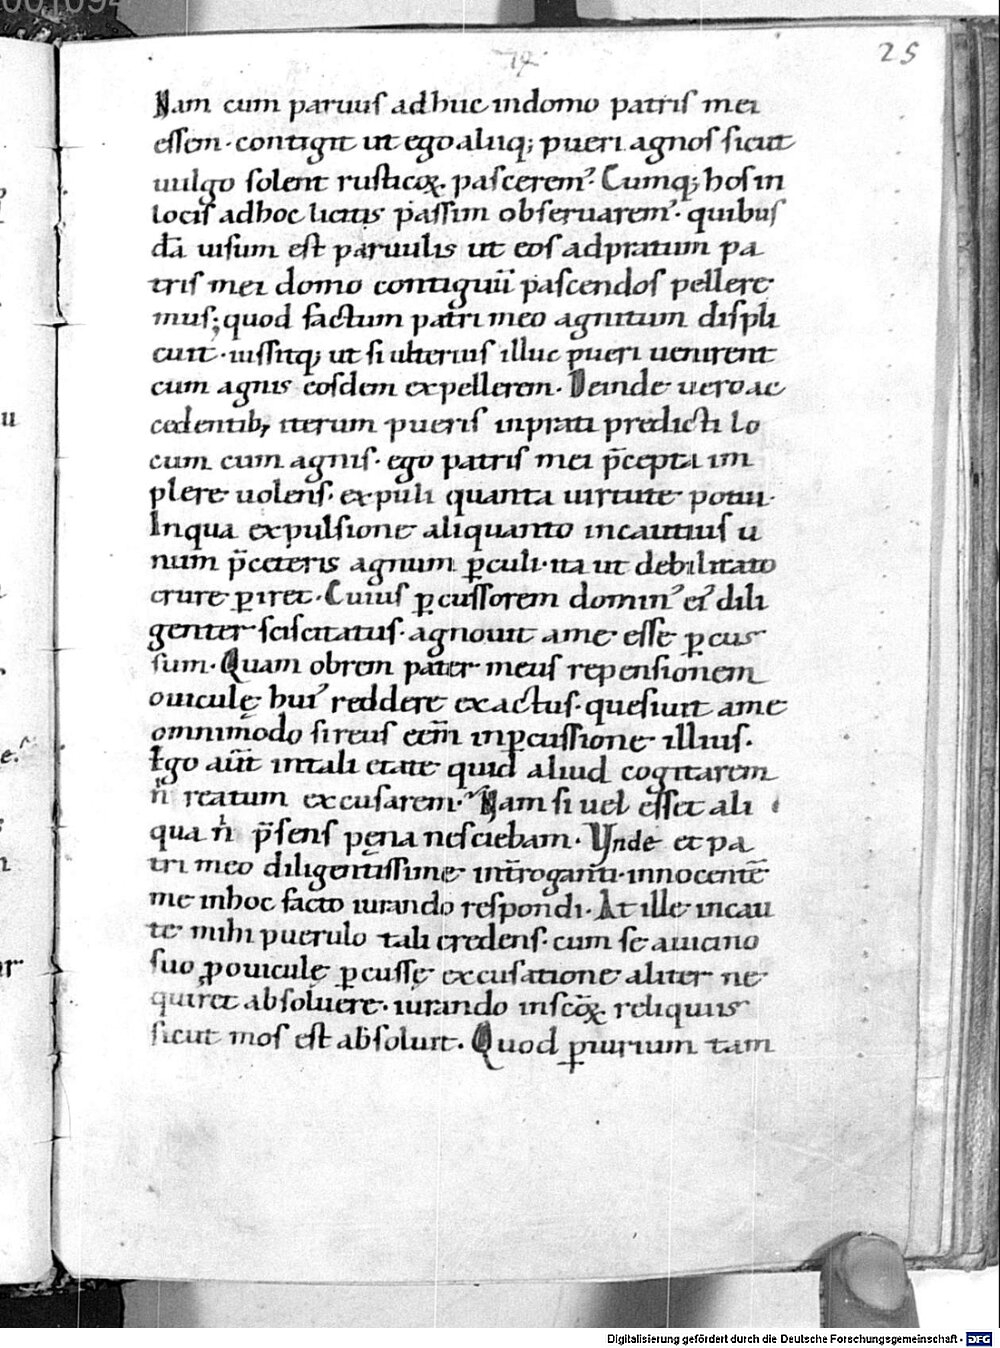 25
Nam cum paruus adhuc indomo patris mei
essem· contigit ut ego aliiq; pueri agnos sicut
uulgo solent rusticoꝝ· pascerem᾽· Cumq; hos in
locis adhoc licitis passim obseruarem᾽· quibus
dā uisum est paruulis ut eos adpratum pa
tris mei domo contiguū pascendos pellere
mus; quod factum patri meo agnitum displi
cuit· iussitq; ut si ulterius illuc pueri uenirent
cum agnis eosdem expellerem· Deinde uero ac
cedentib; iterum pueris inprati predicti lo
cum cum agnis· ego patris mei p̄cepta im
plere uolens· expuli quanta uirtute potui·
Inqua expulsione aliquanto incautius u
num p̄ceteris agnum ꝑculi· ita ut debilitato
crure ꝑiret· Cuius ꝑcussorem domin᾽ ei᾽ dili
genter sciscitatus· agnouit ame esse ꝑcus
sum· Quam obrem pater meus repensionem
ouiculę hui᾽ reddere exactus· quesiuit ame
omnimodo si reus eēm inꝑcussione illius·
Ego aūt intali etate quid aliud cogitarem
n̄ reatum excusarem· Nam si uel esset ali
qua n̄ p̄sens pęna nesciebam· Vnde et pa
tri meo diligentissime int̄roganti· innocentē
me inhoc facto iurando respondi· At ille incau
te mihi puerulo tali credens· cum se auicino
suo ꝓouiculę ꝑcussę excusatione aliter ne
quiret absoluere· iurando insc̄oꝝ reliquiis
sicut mos est absoluit· Quod ꝑiurium tam
Digitalisierung gefördert durch die Deutsche Forschungsgemeinschaft - DFG